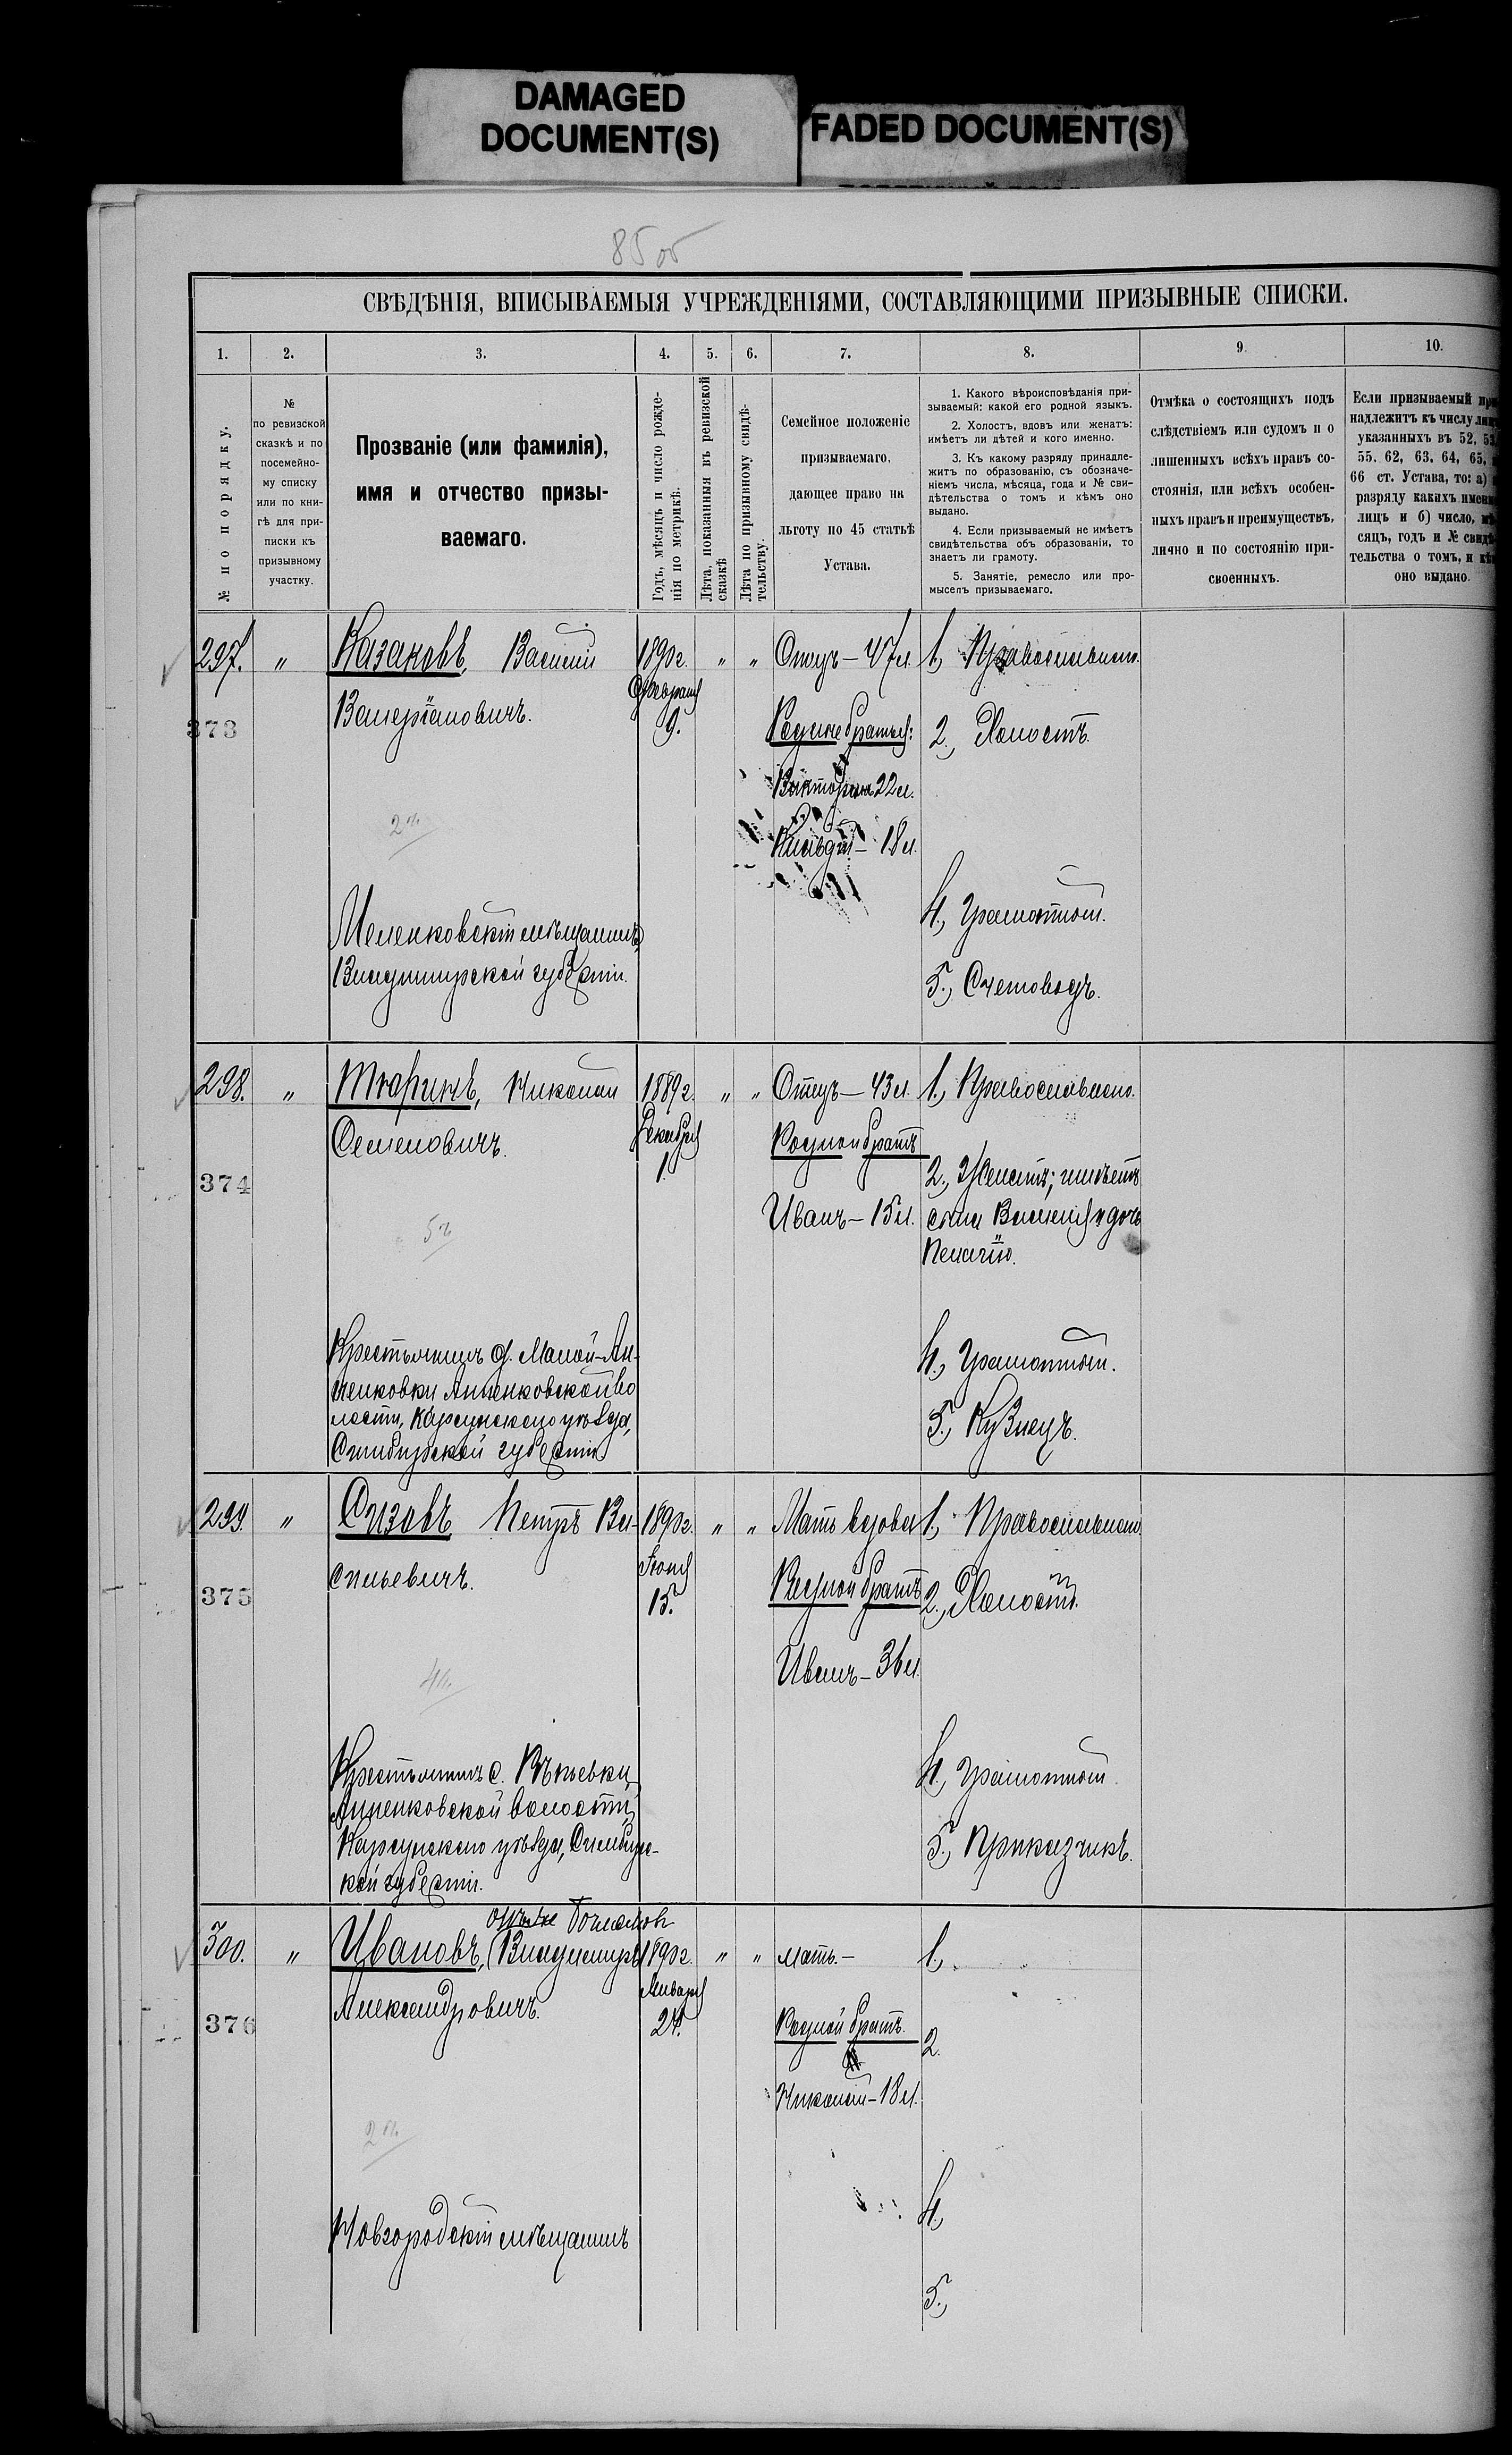 DAMAGED
DOCUMENT(S)
FADED DOCUMENT(S)
85 об
СВѢДѢНІЯ, ВПИСЫВАЕМЫЯ УЧРЕЖДЕНІЯМИ, СОСТАВЛЯЮЩИМИ ПРИЗЫВНЫЕ СПИСКИ.
1. 2. 3. 4. 5. 6. 7. 8. 9. 10.
№ по порядку.
№
по ревизской
сказкѣ и по
посемейно-
му списку
или по кни-
гѣ для при-
писки къ
призывному
участку.
Прозваніе (или фамилія),
имя и отчество призы-
ваемаго.
Годъ, мѣсяцъ и число рожде-
нія по метрикѣ.
Лѣта, показанныя въ ревизской
сказкѣ
Лѣта по призывному свидѣ-
тельству.
Семейное положеніе
призываемаго,
дающее право на
льготу по 45 статьѣ
Устава.
1. Какого вѣроисповѣданія при-
зываемый: какой его родной языкъ.
2. Холостъ, вдовъ или женатъ:
имѣетъ ли дѣтей и кого именно.
3. Къ какому разряду принадле-
житъ по образованію, съ обозначе-
ніемъ числа, мѣсяца, года и № сви-
дѣтельства о томъ и кѣмъ оно
выдано.
4. Если призываемый не имѣетъ
свидѣтельства объ образованіи, то
знаетъ ли грамоту.
5. Занятіе, ремесло или про-
мыселъ призываемаго.
Отмѣка о состоящихъ подъ
слѣдствіемъ или судомъ и о
лишенныхъ всѣхъ правъ со-
стоянія, или всѣхъ особен-
ныхъ правъ и преимуществъ,
лично и по состоянію при-
своенныхъ.
Если призываемый
надлежитъ къ числу
указанныхъ въ 52,
55. 62, 63, 64, 65,
66 ст. Устава, то: а)
разряду какихъ
лицъ и б) число,
сяцъ, годъ и №
тельства о томъ, и
оно выдано.
297. " Казаковъ, Василій 1890 г. " " Отецъ — 47 л. 1, Православнаго.
373 Валеріановичъ. Февраля
9. Родные братья: 2, Холостъ.
22 л.
2 %
18 л.
4, Грамотный.
Меленковскій мѣщанинъ
Владимирской губерніи. 5, Счетоводъ.
298. " Тюринъ, Николай 1889 г. " " Отецъ — 43 л. 1, Православнаго.
Семеновичъ. Декабря
1. Родной братъ
374 2, Женатъ; имѣетъ
Иванъ — 15 л. сына Василія и дочь
Пелагію.
Крестьянинъ д. Малой-Ан-
ненковки Анненковской во
лости, Карсунскаго уѣзда,
Симбирской губерніи
4, Грамотный.
5, Кузнецъ.
299. " Сизовъ Петръ Ва- 1890 г. " " Мать вдова 1, Православнаго.
сильевичъ. Іюня
15. Родной братъ 2, Холостъ.
375
Иванъ — 36 л.
Крестьянинъ с.
Анненковской волости,
Карсунскаго уѣзда, Симбирс-
кой губерніи.
4, Грамотный.
5, Приказчикъ.
300. " Ивановъ, Владимиръ 1890 г. " " мать. — 1,
Александровичъ. Января
24. Родной братъ. 2.
376
Николай — 18 л.
Новгородскій мѣщанинъ
4,
5,